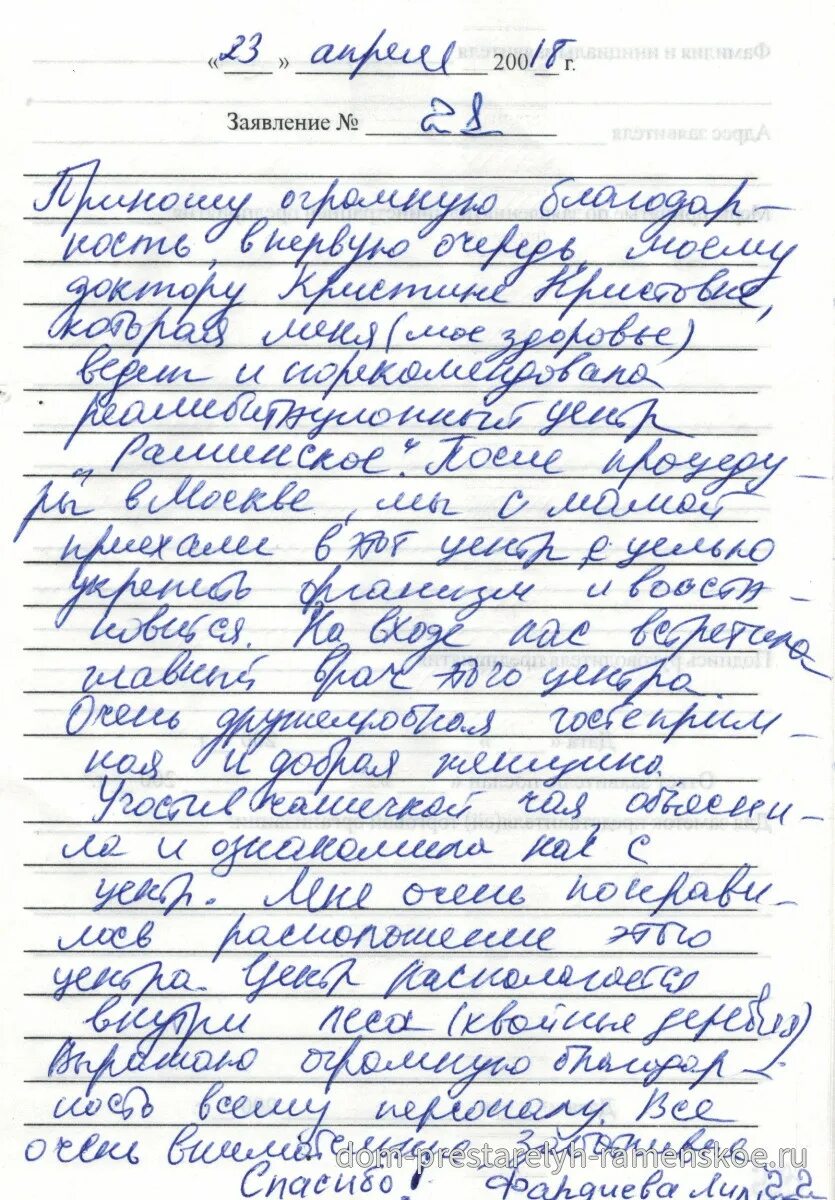 «23» апреля 20018 г.
Заявление № 28
Приношу огромную благодар-
ность, в первую очередь, моему
доктору Кристине Христовне,
которая меня (мое здоровье)
ведет и порекомендовала
реалибитационный центр
„Раминское“. После процеду-
ры в Москве, мы с мамой
приехали в этот центр с целью
укрепить организм и восста-
новится. На входе нас встретила
главный врач этого центра.
Очень дружелюбная гостеприим-
ная и добрая женщина
Угостив чашечкой чая, объясни-
ла и ознакомила нас с
центр. Мне очень понрави-
лось расположение этого
центра. Центр распологается
внутри леса (хвойные деревья)
Выражаю огромную благодар-
ность всему персоналу. Все
очень внимательные заботливые
Спасибо!
dom-prestarelyh-ramenskoe.ru